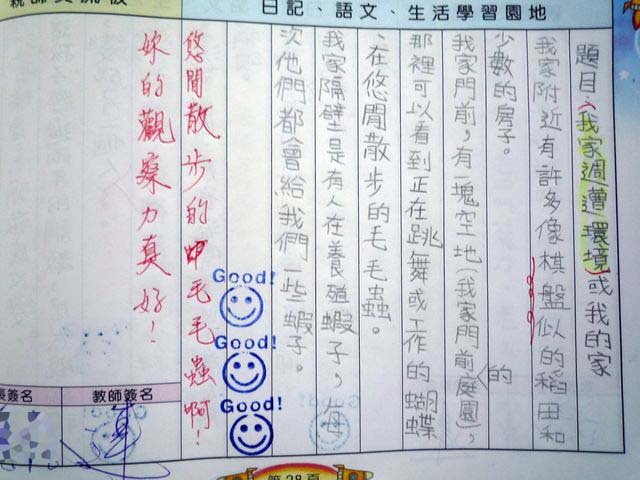 日記、語文、生活學習園地
題目:(我家週遭環境)或我的家
我家附近有許多像棋盤似的稻田和
少數的房子。
我家門前,有一塊空地(我家門前的庭園),
那裡可以看到正在跳舞或工作的蝴蝶
、在悠閒散步的毛毛蟲。
我家隔壁是有人在養殖蝦子,每
次他們都會給我們一些蝦子。
Good!
Good!
Good!
悠閒散步的毛毛蟲啊!
妳的觀察力真好!
教師簽名
長簽名
第28頁